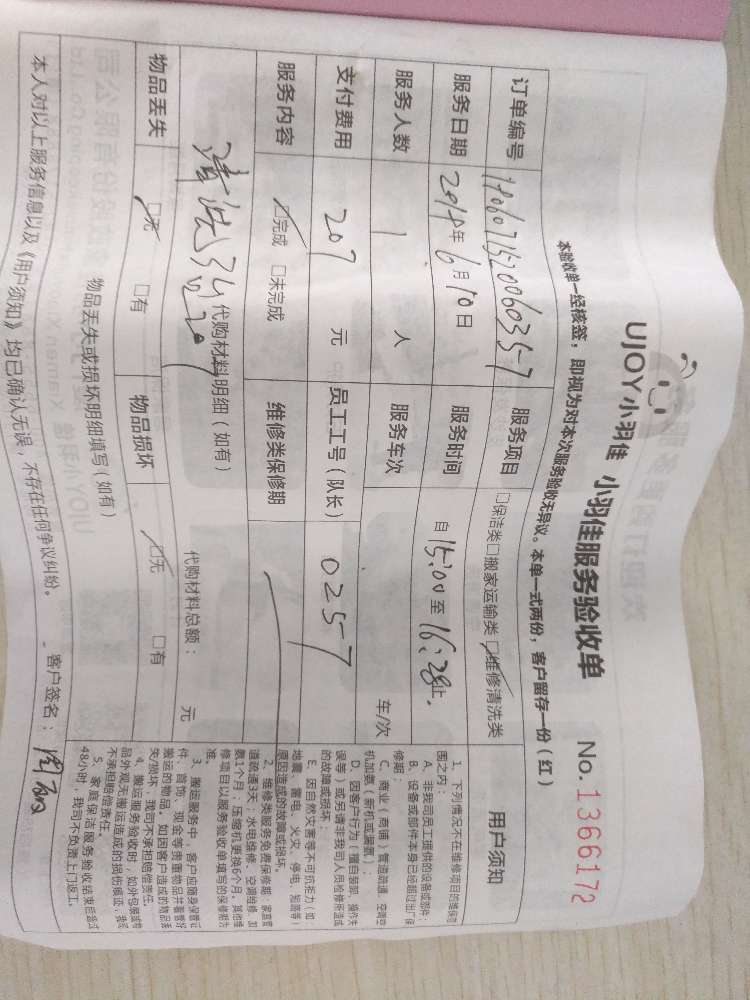 UJOY小羽佳 小羽佳服务验收单 No.1366172
本验收单一经核签，即视为对本次服务验收无异议。本单一式两份，客户留存一份（红）
订单编号 服务项目 □保洁类□搬家运输类□维修清洗类
服务日期 2018年6月10日 服务时间 自15:00至16:28止
服务人数 1 人 服务车次 车/次
支付费用 207 元 员工工号（队长） 0257
服务内容 □完成 □未完成 维修类保修期
代购材料明细（如有） 代购材料总额： 元
清洗
物品丢失 □无 □有 物品损坏 □无 □有
物品丢失或损坏明细填写（如有）
本人对以上服务信息以及《用户须知》均已确认无误，不存在任何争议纠纷。 客户签名：
用户须知
1、下列情况不在维修项目的维保范
围之内：
A、非我司员工提供的设备或部件；
B、设备或部件本身已经超过出厂保
修期；
C、商业（商铺）管道疏通、空调含
机加氨（新机或漏氨）；
D、因客户行为（擅自装卸、操作失
误等）或另请非我司人员检修所造成
的故障或损坏；
E、因自然灾害等不可抗拒力（如：
地震、雷电、火灾、停电、短路等）
原因造成的故障或损坏。
2、维修类服务免费保修期：家庭管
道疏通3天；水电维修、空调维修、加
氨1个月；压缩机更换6个月。其他维
修项目以服务验收单填写的保修期为
准。
3、搬运服务中，客户应随身保管证
件、首饰、现金等贵重物品并看管好
搬运的物品。如因客户造成的物品丢
失/损坏，我司不承担赔偿责任。
4、搬运服务验收时，如外包装或物
品外观无搬运造成的损伤痕迹，我司
不承担赔偿责任。
5、家庭保洁服务验收结束后超过
48小时，我司不负责上门返工。